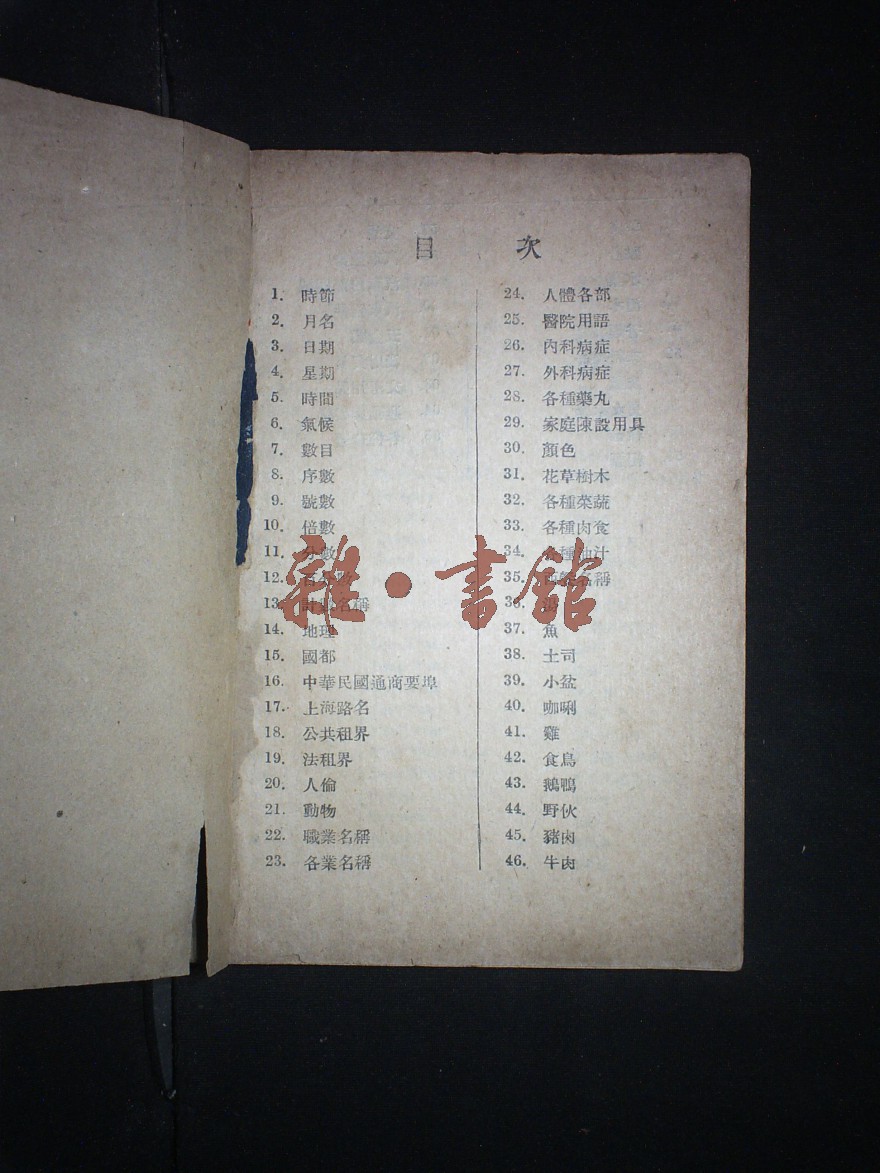 目次
1. 時節
2. 月名
3. 日期
4. 星期
5. 時間
6. 氣候
7. 數目
8. 序數
9. 號數
10. 倍數
11. 分數
12. 百分數
13. 計算名稱
14. 地理
15. 國都
16. 中華民國通商要埠
17. 上海路名
18. 公共租界
19. 法租界
20. 人倫
21. 動物
22. 職業名稱
23. 各業名稱
24. 人體各部
25. 醫院用語
26. 內科病症
27. 外科病症
28. 各種藥丸
29. 家庭陳設用具
30. 顏色
31. 花草樹木
32. 各種菜蔬
33. 各種肉食
34. 各種油汁
35. 名稱
36.
37. 魚
38. 土司
39. 小盆
40. 咖唎
41. 雞
42. 食鳥
43. 鵝鴨
44. 野伙
45. 豬肉
46. 牛肉
雜·書館